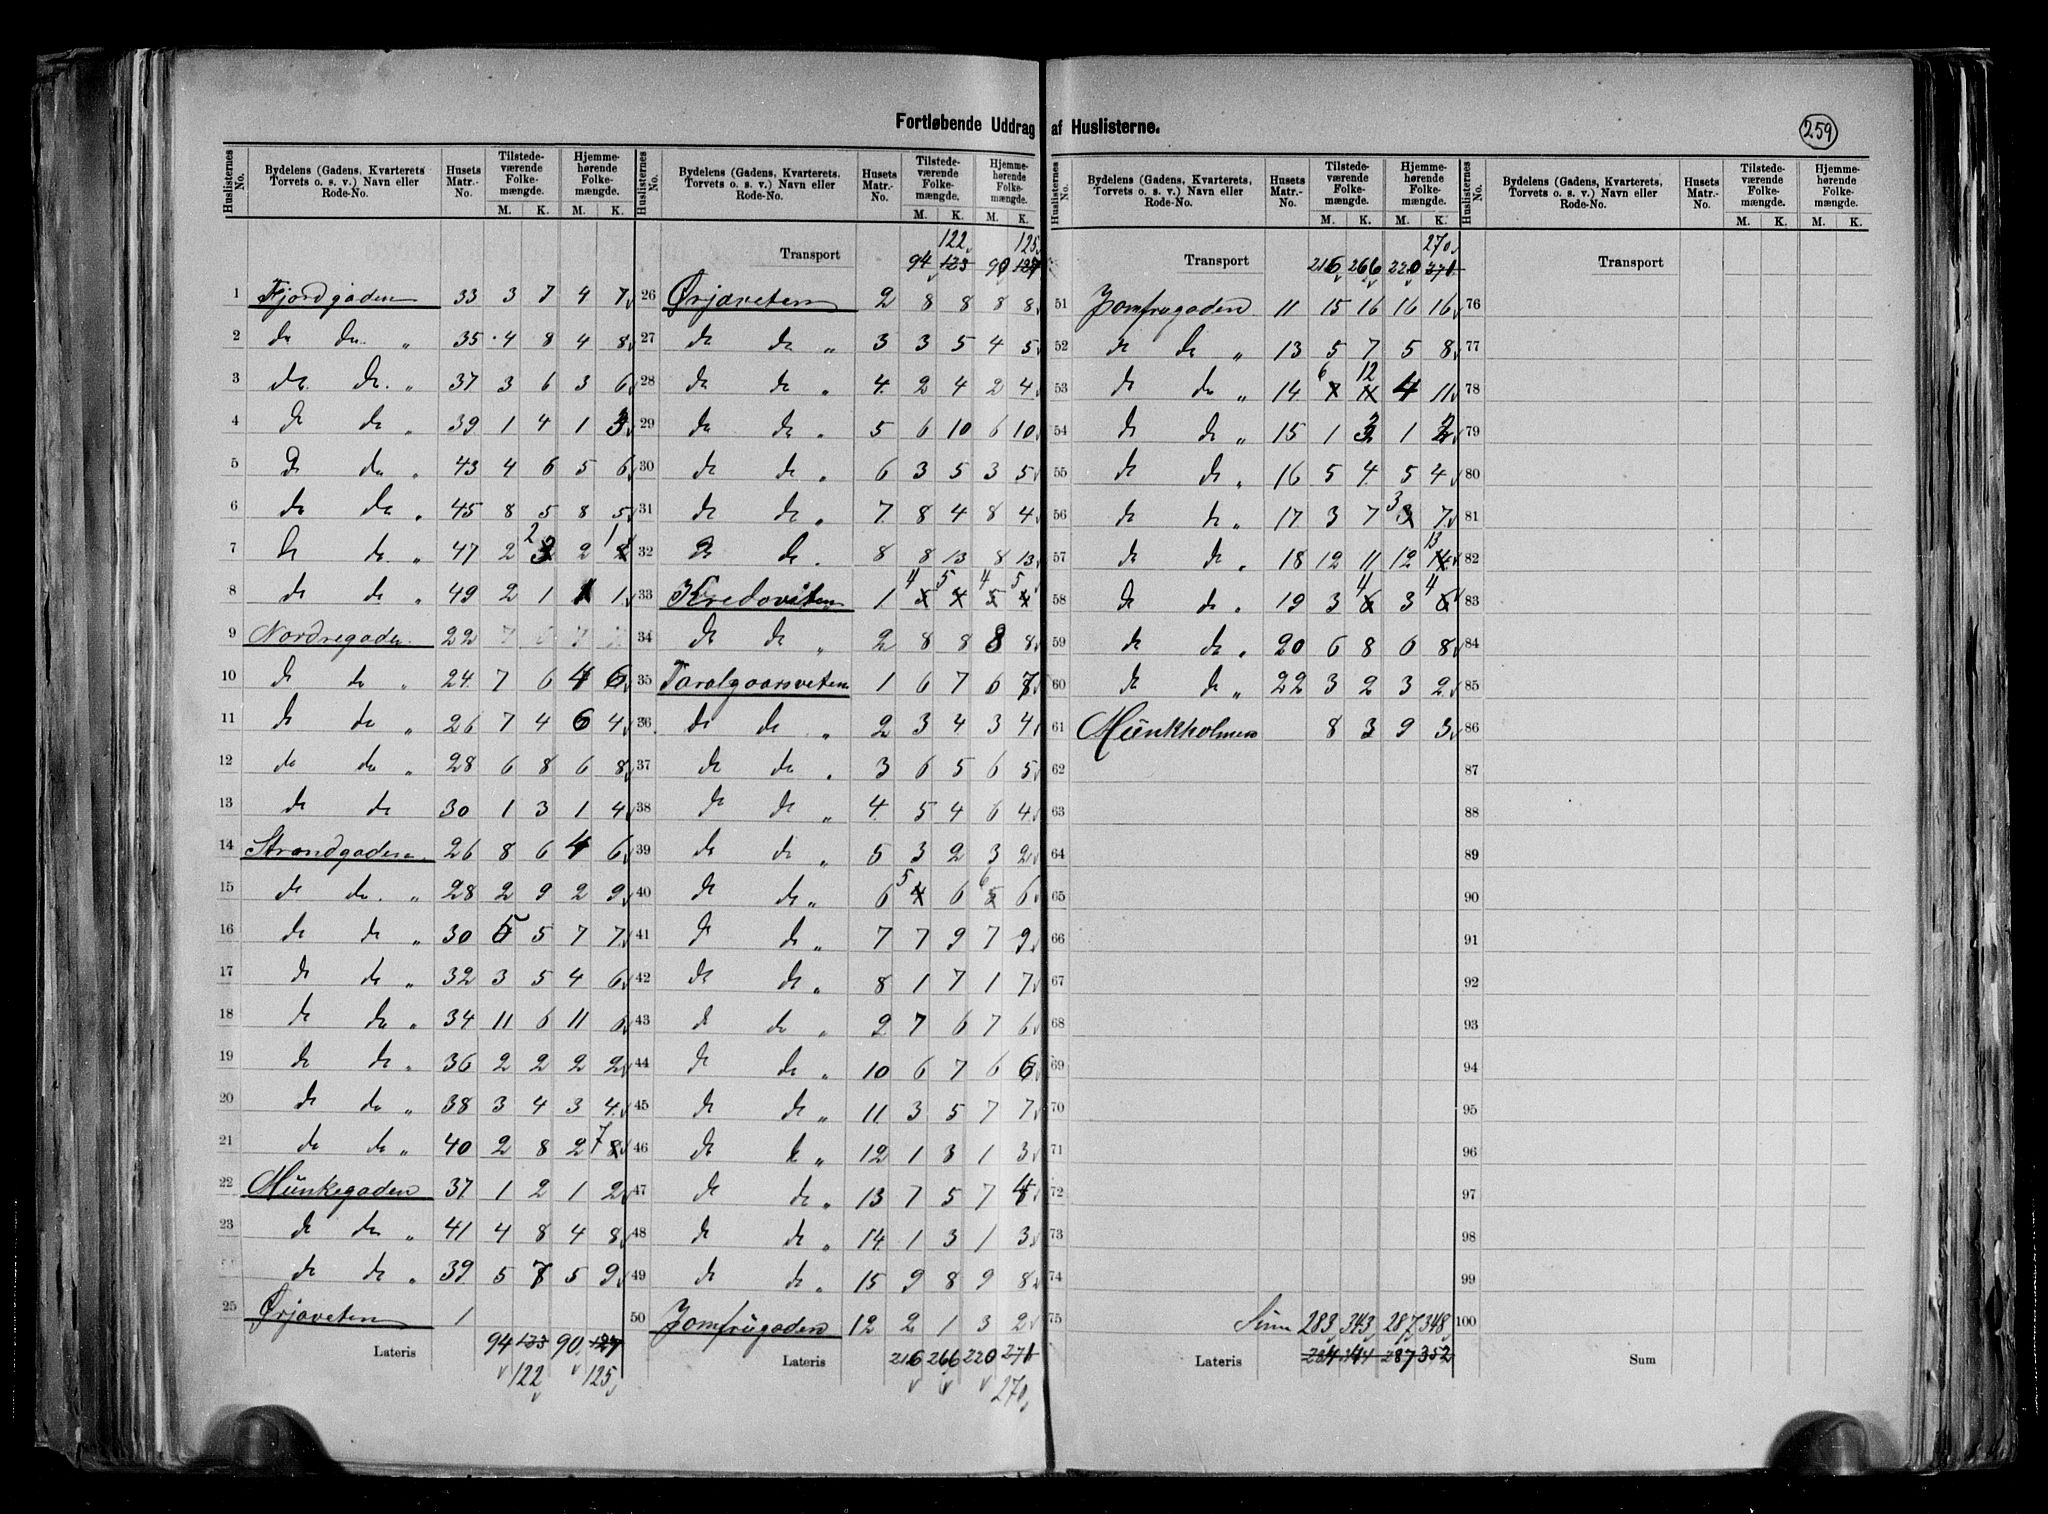 Fortløbende Uddrag af Huslisterne.
259
Huslisternes No. Bydelens (Gadens, Kvarterets, Torvets o. s. v.) Navn eller Rode-No. Husets Matr.-No. Tilstedeværende Folkemængde. M. K. Hjemmehørende Folkemængde. M. K.
1 Fjordgaden 33 3 7 4 7
2 do do „ 35 4 8 4 8
3 do do „ 37 3 6 3 6
4 do do „ 39 1 4 1 3
5 do do „ 43 4 6 5 6
6 do do „ 45 8 5 8 5
7 do do „ 47 2 2 2 1
8 do do „ 49 2 1 1 1
9 Nordregaden 22
10 do do „ 24 7 6 4 6
11 do do „ 26 7 4 6 4
12 do do „ 28 6 8 6 8
13 do do 30 1 3 1 4
14 Strandgaden 26 8 6 4 6
15 do do „ 28 2 9 2 9
16 do do „ 30 5 5 7 7
17 do do „ 32 3 5 4 6
18 do do „ 34 11 6 11 6
19 do do „ 36 2 2 2 2
20 do do „ 38 3 4 3 4
21 do do „ 40 2 8 2 7
22 Munkegaden 37 1 2 1 2
23 do do „ 41 4 8 4 8
do do „ 39 5 7 5 9
25 Ørjaveten 1
94 133 90 127
Lateris
122 125
Huslisternes No. Bydelens (Gadens, Kvarterets, Torvets o. s. v.) Navn eller Rode-No. Husets Matr.-No. Tilstedeværende Folkemængde. M. K. Hjemmehørende Folkemængde. M. K.
122 125
Transport 94 123 90 127
26 Ørjaveten 2 8 8 8 8
27 do do „ 3 3 5 4 5
28 do do „ 4 2 4 2 4
29 do do „ 5 6 10 6 10
30 do do „ 6 3 5 3 5
31 do do „ 7 8 4 8 4
32 do do „ 8 8 13 8 13
33 Kredoveten 1 4 5 4 5
34 do do „ 2 8 8 8 8
35 Taralgaarsveten 1 6 7 6 7
36 do do „ 2 3 4 3 4
37 do do „ 3 6 5 6 5
38 do do „ 4 5 4 6 4
39 do do „ 5 3 2 3 2
40 do do „ 6 5 6 6 6
41 do do „ 7 7 9 7 9
42 do do „ 8 1 7 1 7
43 do do „ 9 7 6 7 6
44 do do „ 10 6 7 6 6
45 do do „ 11 3 5 7 7
46 do do „ 12 1 3 1 3
47 do do „ 13 7 5 7 4
48 do do „ 14 1 3 1 3
49 do do „ 15 9 8 9 8
50 Jomfrugaden 12 2 1 3 2
Lateris 216 266 220 271
270
Huslisternes No. Bydelens (Gadens, Kvarterets, Torvets o. s. v.) Navn eller Rode-No. Husets Matr.-No. Tilstedeværende Folkemængde. M. K. Hjemmehørende Folkemængde. M. K.
270
Transport 216 266 220 271
51 Jomfrugaden 11 15 16 16 16
52 do do „ 13 5 7 5 8
53 do do „ 14 6 12 4 11
54 do do „ 15 1 3 1 2
55 do do „ 16 5 4 5 4
56 do do „ 17 3 7 3 7
57 do do 18 12 11 12 13
58 do do „ 19 3 4 3 4
59 do do „ 20 6 8 6 8
60 do do „ 22 3 2 3 2
61 Munkholmen 8 3 9 3
62
63
64
65
66
67
68
69
70
71
72
73
74
75 Sum 283 343 287 348
Lateris 284 344 287 352
Huslisternes No. Bydelens (Gadens, Kvarterets, Torvets o. s. v.) Navn eller Rode-No. Husets Matr.-No. Tilstedeværende Folkemængde. M. K. Hjemmehørende Folkemængde. M. K.
Transport
76
77
78
79
80
81
82
83
84
85
86
87
88
89
90
91
92
93
94
95
96
97
98
99
100
Sum